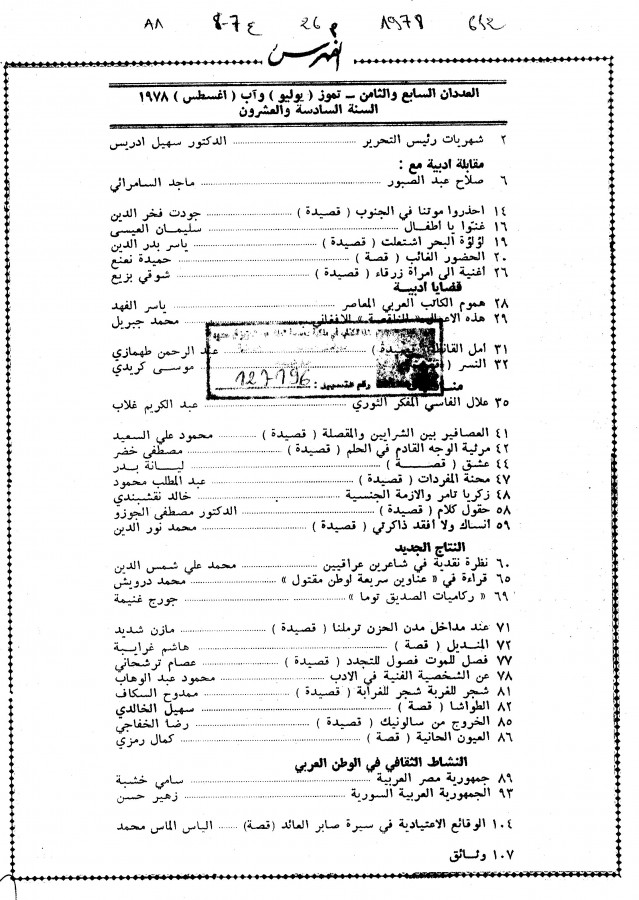 ٨٨ ع 7-8 م 26 1978 642
الفهرس
العددان السابع والثامن ــ تموز ( يوليو ) وآب ( اغسطس ) ١٩٧٨
السنة السادسة والعشرون
٢ شهريات رئيس التحرير الدكتور سهيل ادريس
مقابلة ادبية مع :
٦ صلاح عبد الصبور ماجد السامرائي
١٤ احذروا موتنا في الجنوب ( قصيدة ) جودت فخر الدين
١٦ غنتوا يا اطفال سليمان العيسى
١٩ لؤلؤة البحر اشتعلت ( قصيدة ) ياسر بدر الدين
٢٠ الحضور الغائب ( قصة ) حميدة نعنع
٢٦ اغنية الى امرأة زرقاء ( قصيدة ) شوقي بزيع
قضايا ادبية
٢٨ هموم الكاتب العربي المعاصر ياسر الفهد
٢٩ هذه الاعمال « الناقصة » للافغاني محمد جبريل
٣١ أمل القائظ ( قصيدة ) عبد الرحمن طهمازي
٣٢ النسر ( موسى كريدي
رقم 127196
٣٥ علال الفاسي المفكر الثوري عبد الكريم غلاب
٤١ العصافير بين الشرايين والمقصلة ( قصيدة ) محمود علي السعيد
٤٢ مرثية الوجه القادم في الحلم ( قصيدة ) مصطفى خضر
٤٤ عشق ( قصة ) ليانة بدر
٤٧ محنة المفردات ( قصيدة ) عبد المطلب محمود
٤٨ زكريا تامر والازمة الجنسية خالد نقشبندي
٥٨ حقول كلام ( قصيدة ) الدكتور مصطفى الجوزو
٥٩ انساك ولا افقد ذاكرتي ( قصيدة ) محمد نور الدين
النتاج الجديد
٦٠ نظرة نقدية في شاعرين عراقيين محمد علي شمس الدين
٦٥ قراءة في « عناوين سريعة لوطن مقتول » محمد درويش
٦٩ « ركاميات الصديق توما » جورج غنيمة
٧١ عند مداخل مدن الحزن ترملنا ( قصيدة ) مازن شديد
٧٢ المنديل ( قصة ) هاشم غرايبة
٧٧ فصل للموت فصول للتجدد ( قصيدة ) عصام ترشحاني
٧٨ عن الشخصية الفنية في الادب محمود عبد الوهاب
٨١ شجر للغربة شجر للغرابة ( قصيدة ) ممدوح السكاف
٨٢ الطواشا ( قصة ) سهيل الخالدي
٨٥ الخروج من سالونيك ( قصيدة ) رضا الخفاجي
٨٦ العيون الحانية ( قصة ) كمال رمزي
النشاط الثقافي في الوطن العربي
٨٩ جمهورية مصر العربية سامي خشبة
٩٣ الجمهورية العربية السورية زهير حسن
١٠٤ الوقائع الاعتيادية في سيرة صابر العائد (قصة) الياس الماس محمد
١٠٧ وثائق